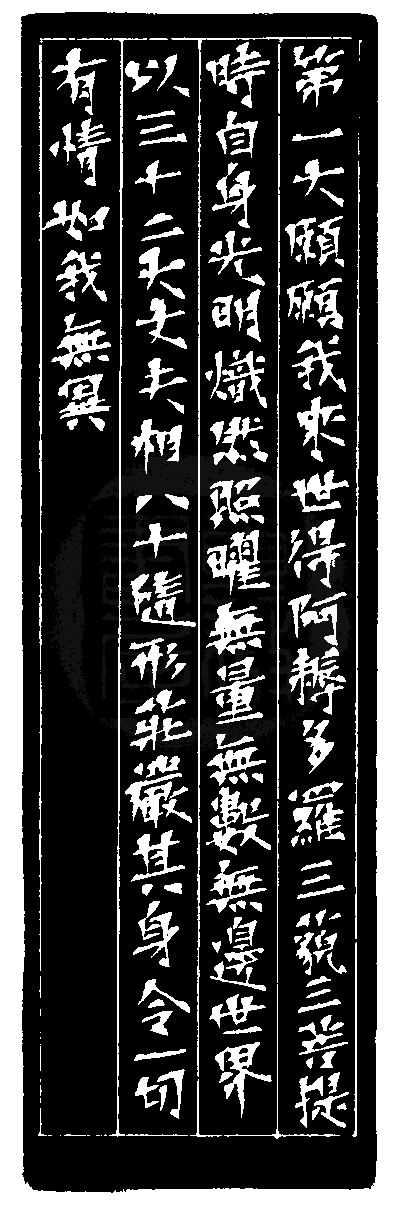 第一大願願我來世得阿耨多羅三藐三菩提
時自身光明熾然照曜無量無數無邊世界
以三十二大丈夫相八十隨形莊嚴其身令一切
有情如我無異